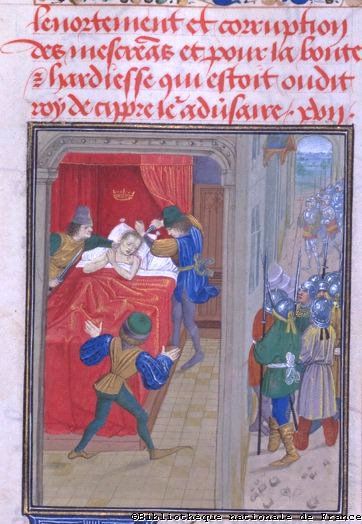 leuortement et corruption
des mescreãs et pour la bonte
& hardiesse qui estoit oudit
roy de cippre le˜ aduersaire. xvii.
©Bibliothèque nationale de France